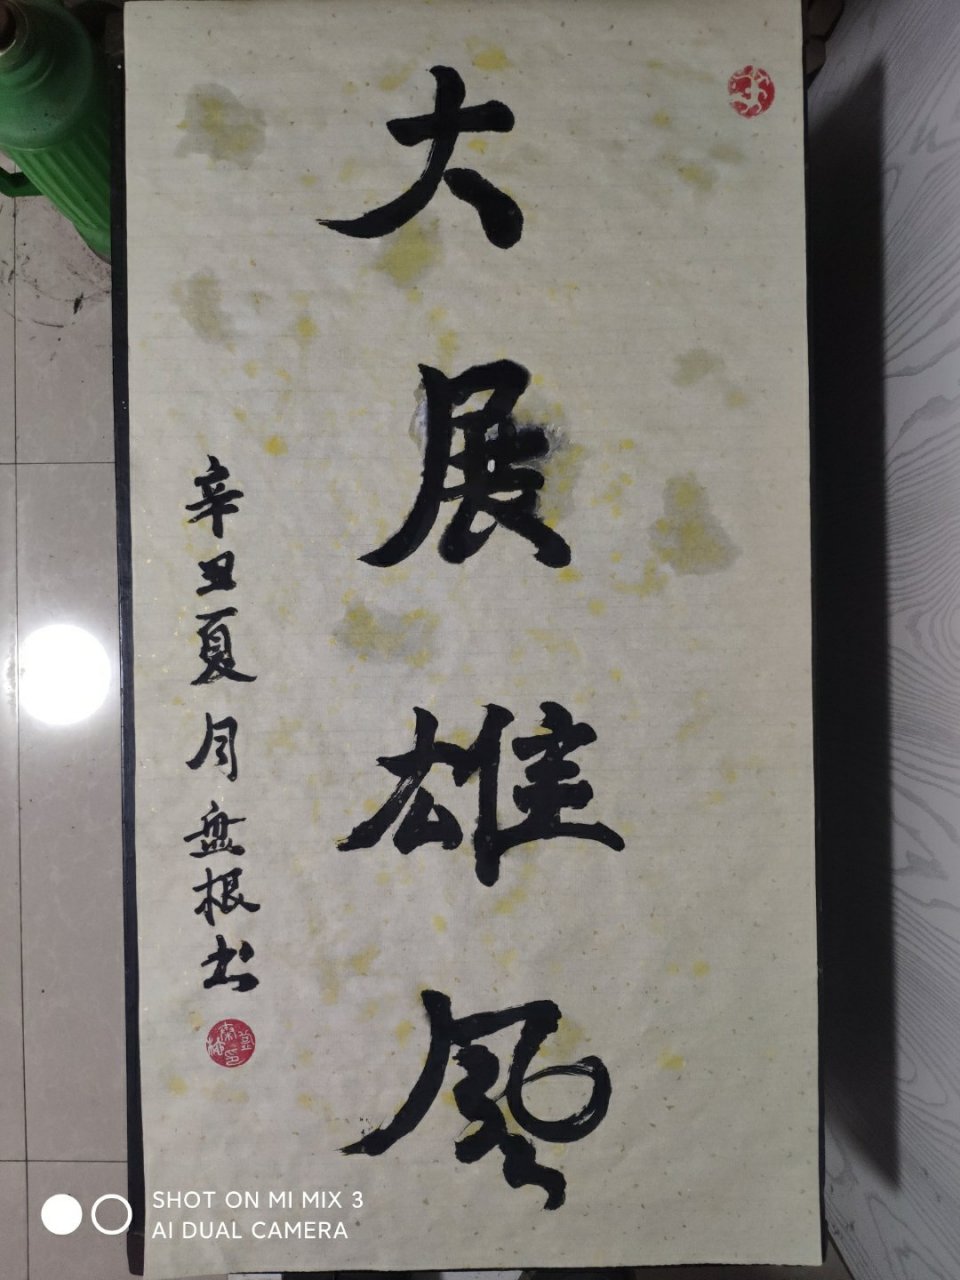 大展雄风
辛丑夏月盘根书
SHOT ON MI MIX 3
AI DUAL CAMERA